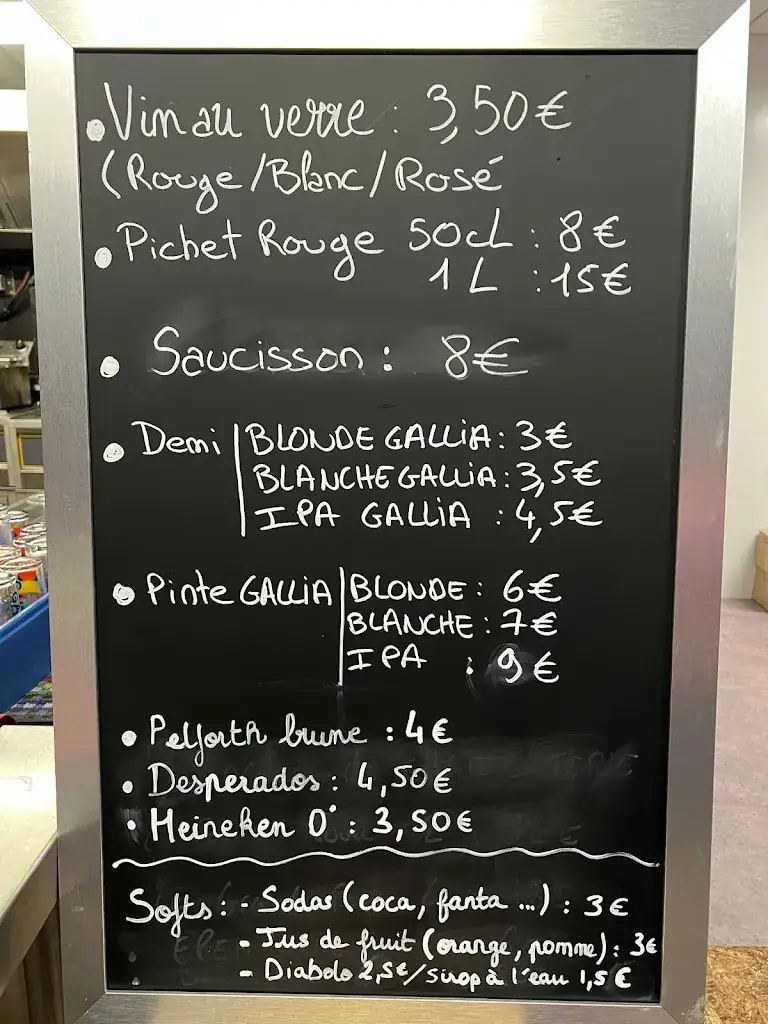 Vin au verre : 3,50€
(Rouge/Blanc/Rosé
Pichet Rouge 50cL : 8€
1 L : 15€
Saucisson : 8€
Demi BLONDE GALLiA : 3€
BLANCHE GALLiA : 3,5€
IPA GALLiA : 4,5€
Pinte GALLIA BLONDE : 6€
BLANCHE : 7€
IPA : 9€
Pelforth brune : 4€
Desperados : 4,50€
Heineken 0° : 3,50€
Softs : - Sodas (coca, fanta ...) : 3€
- Jus de fruit (orange, pomme) : 3€
- Diabolo 2,5€/sirop à l'eau 1,5€